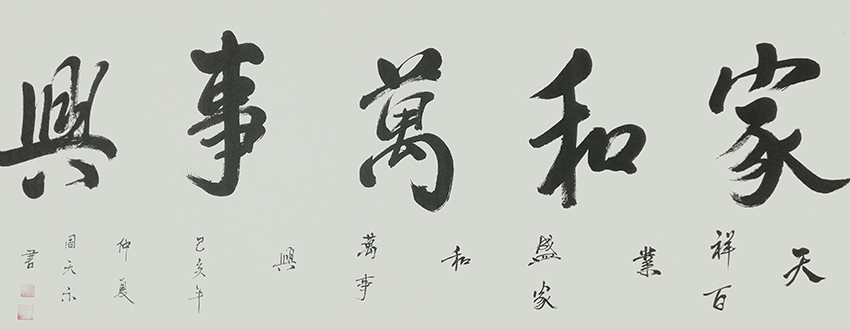 家和萬事興
天
祥百
業
盛家
和
萬事
興
己亥年
仲夏
周天
書